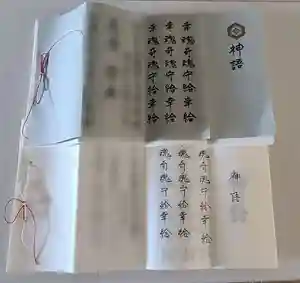 神語
幸魂奇魂守給幸給
幸魂奇魂守給幸給
幸魂奇魂守給幸給
神語
魂奇魂守給幸給
魂奇魂守給幸給
魂奇魂守給幸給